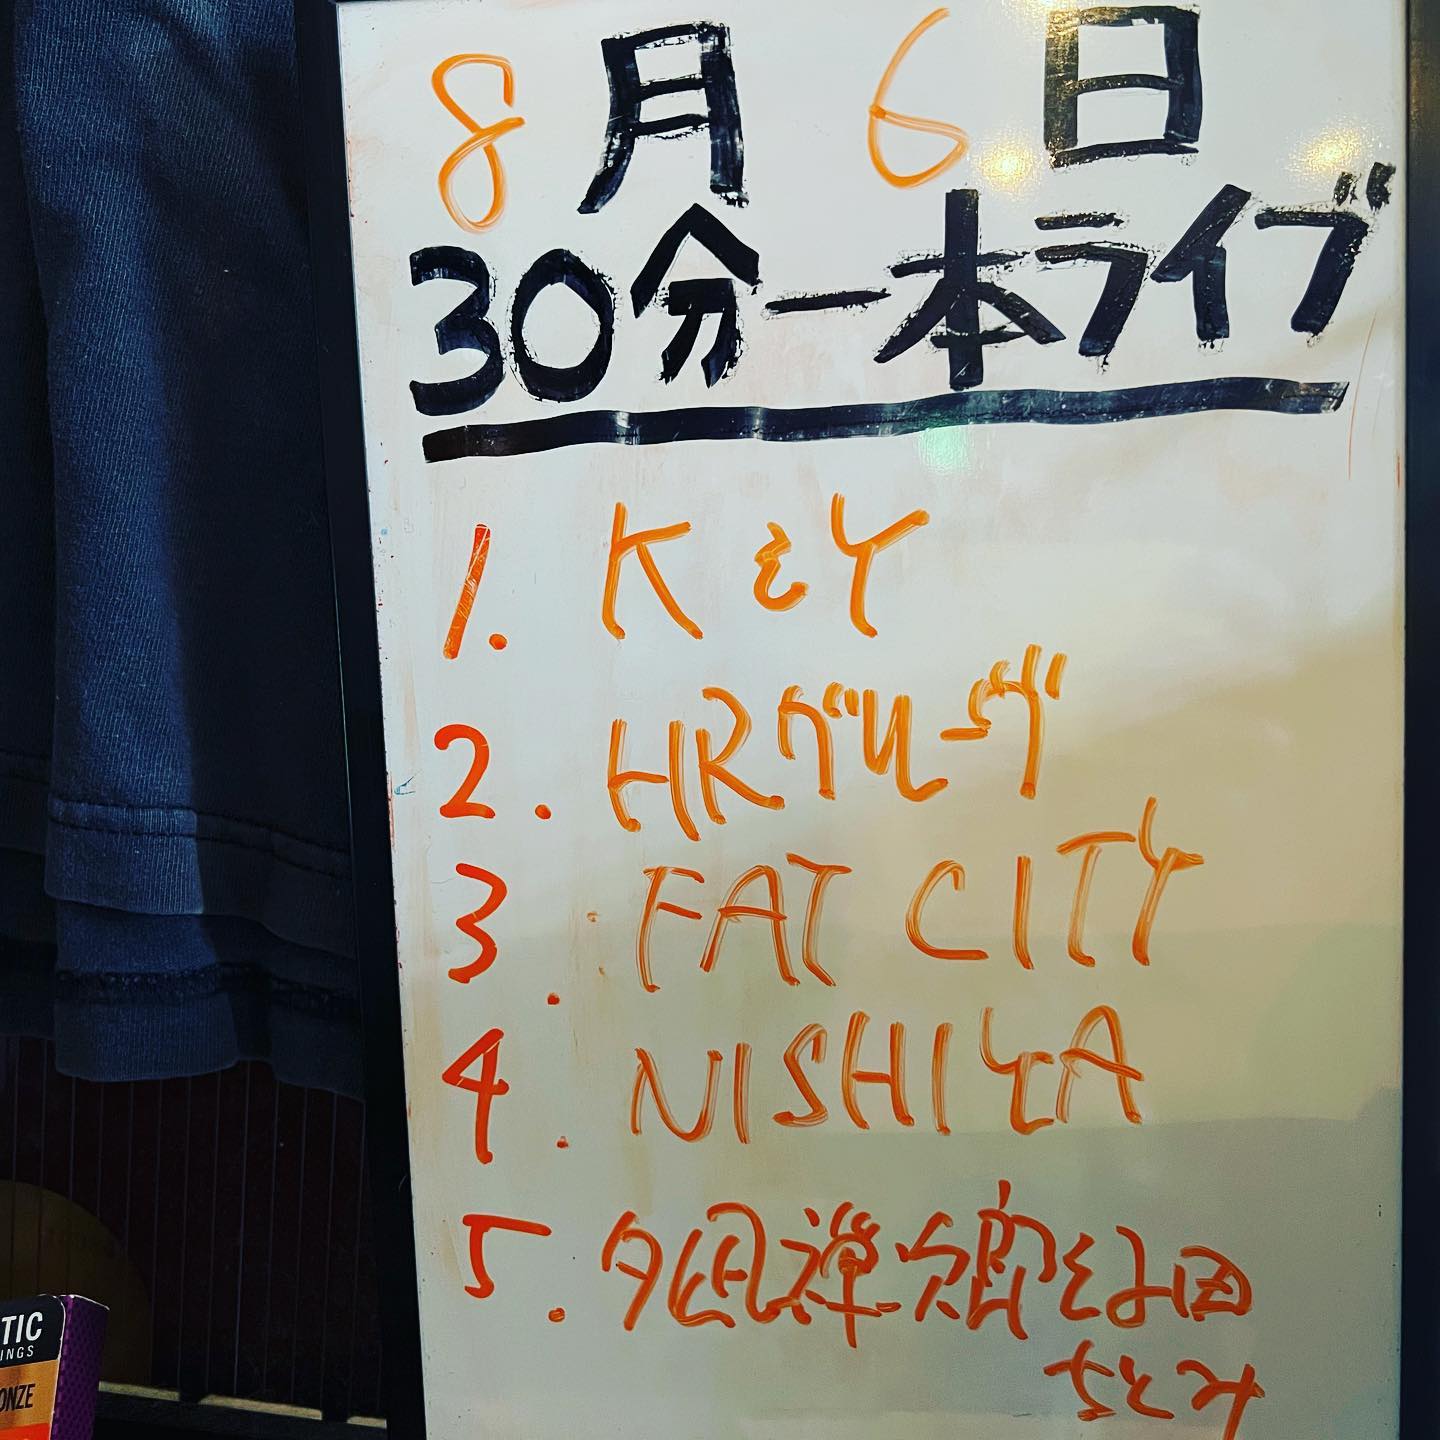 8月 6日
30分一本ライブ
1. K&Y
2. HRグルーヴ
3. FAT CITY
4. NISHIYA
5. 夕凪禅次郎と
さとみ
TIC
INGS
ONZE